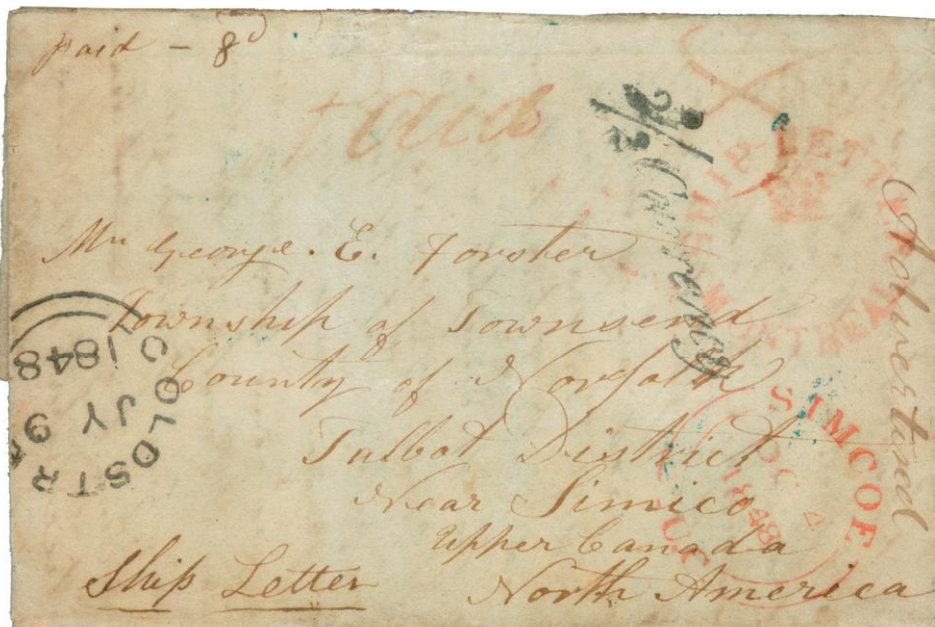 Paid - 8d
Paid
2/2 Currency
SHIP LETTER
MONTREAL
Advertised
Mr George. E. Forster
Township of Townsend
County of Norfolk
Talbot District
Near Simico
Upper Canada
North America
Ship Letter
COLDSTR
JY 9
1848
SIMCOE
OC 4
1848
U.C